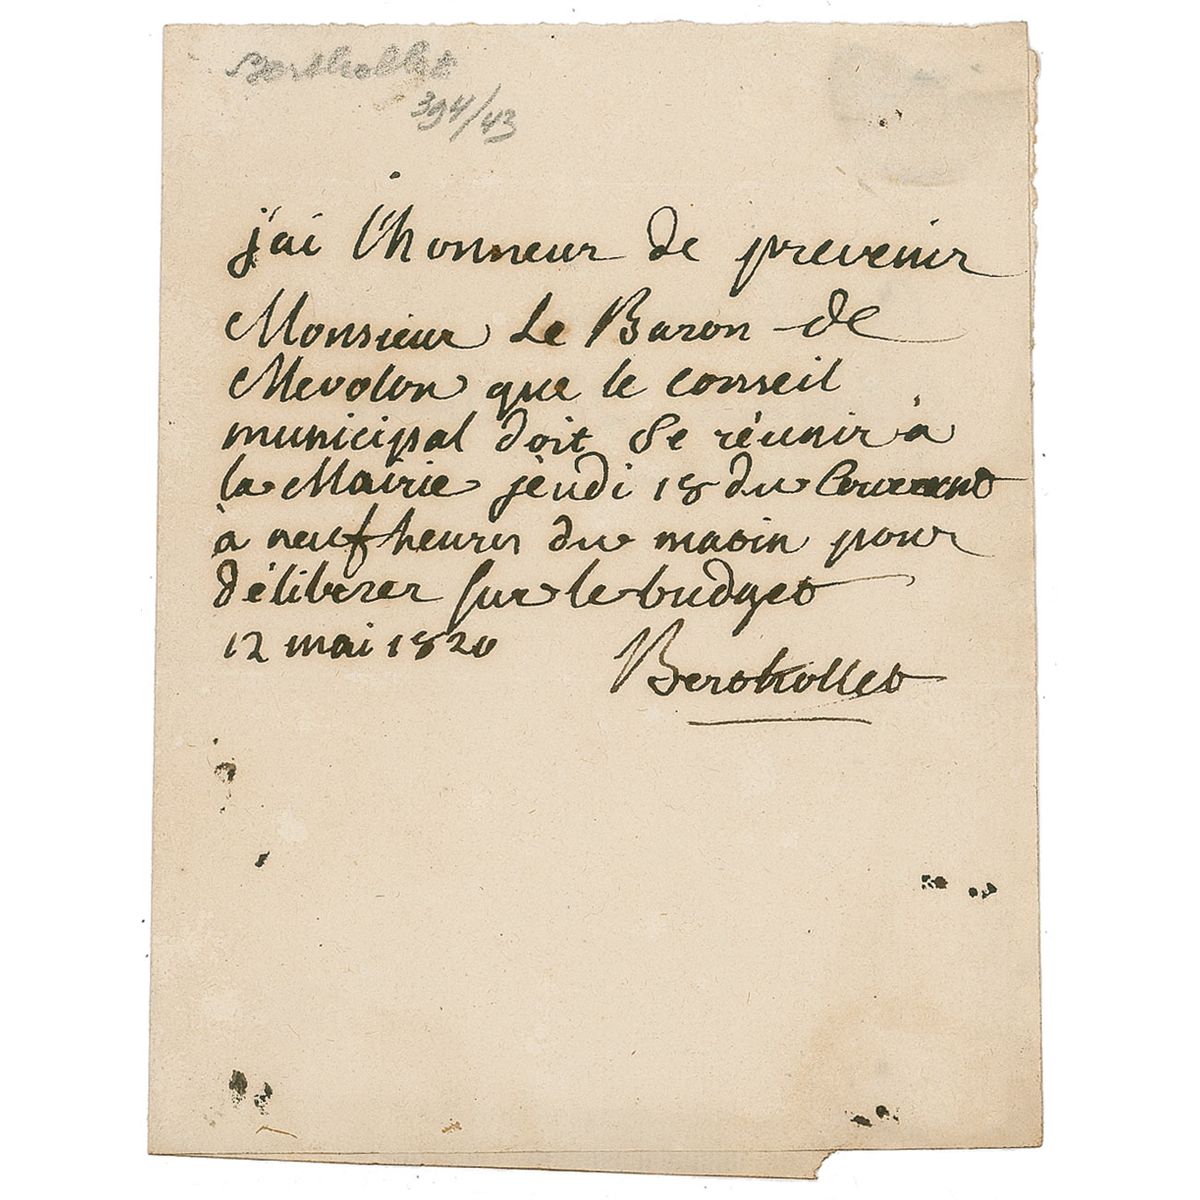 Berthollet
394/43
j'ai l'honneur de prevenir
Monsieur Le Baron de
Mevolon que le conseil
municipal doit se réunir à
la Mairie jeudi 18 du Courrant
à neuf heures du matin pour
déliberer sur le budget
12 mai 1820
Berthollet